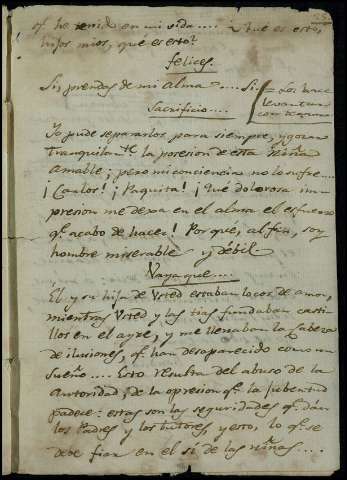 qᵉ he tenido en mi vida.... ¿Qué es esto,
hijos mios, qué es esto?
felices.
Sis prendas de mi alma?.... Si.
= Los hace
levantar
con ternura
Sacrificio....
Yo pude separarlos para siempre, y gozar
tranquilam.ᵗᵉ la posesion de esta Niña
amable; pero mi conciencia no lo sufre....
¡Carlos! ¡Paquita! ¡Qué dolorosa im-
presion me dexa en el alma el esfuerzo
qᵉ acabo de hacer! Porque, al fin, soy
hombre miserable y débil.
Vaya que....
El y su hija de Usted estaban locos de amor,
mientras Usted y las tias fundaban casti-
llos en el ayre, y me llenaban la cabeza
de ilusiones, qᵉ han desaparecido como un
sueño.... Esto resulta del abuso de la
autoridad, de la opresion qᵉ la jubentud
padece: estas son las seguridades qᵉ dán
los Padres y los tutores, y esto, lo qᵉ se
debe fiar en el sí de las niñas....